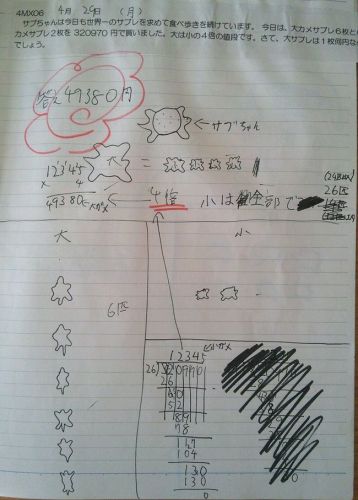 4MX06 4月29日 (月)
サブちゃんは今日も世界一のサブレを求めて食べ歩きを続けています。今日は、大カメサブレ6枚と
カメサブレ2枚を320970円で買いました。大は小の4倍の値段です。さて、大サブレは1枚何円な
でしょう。
答え49380円
←サブちゃん
大 =
12345
× 4
49380 ←大ガメ
4倍 小は全部で
26匹
大
小
6匹
小ガメ
12345
26)320970
26
60
52
89
78
117
104
130
130
0